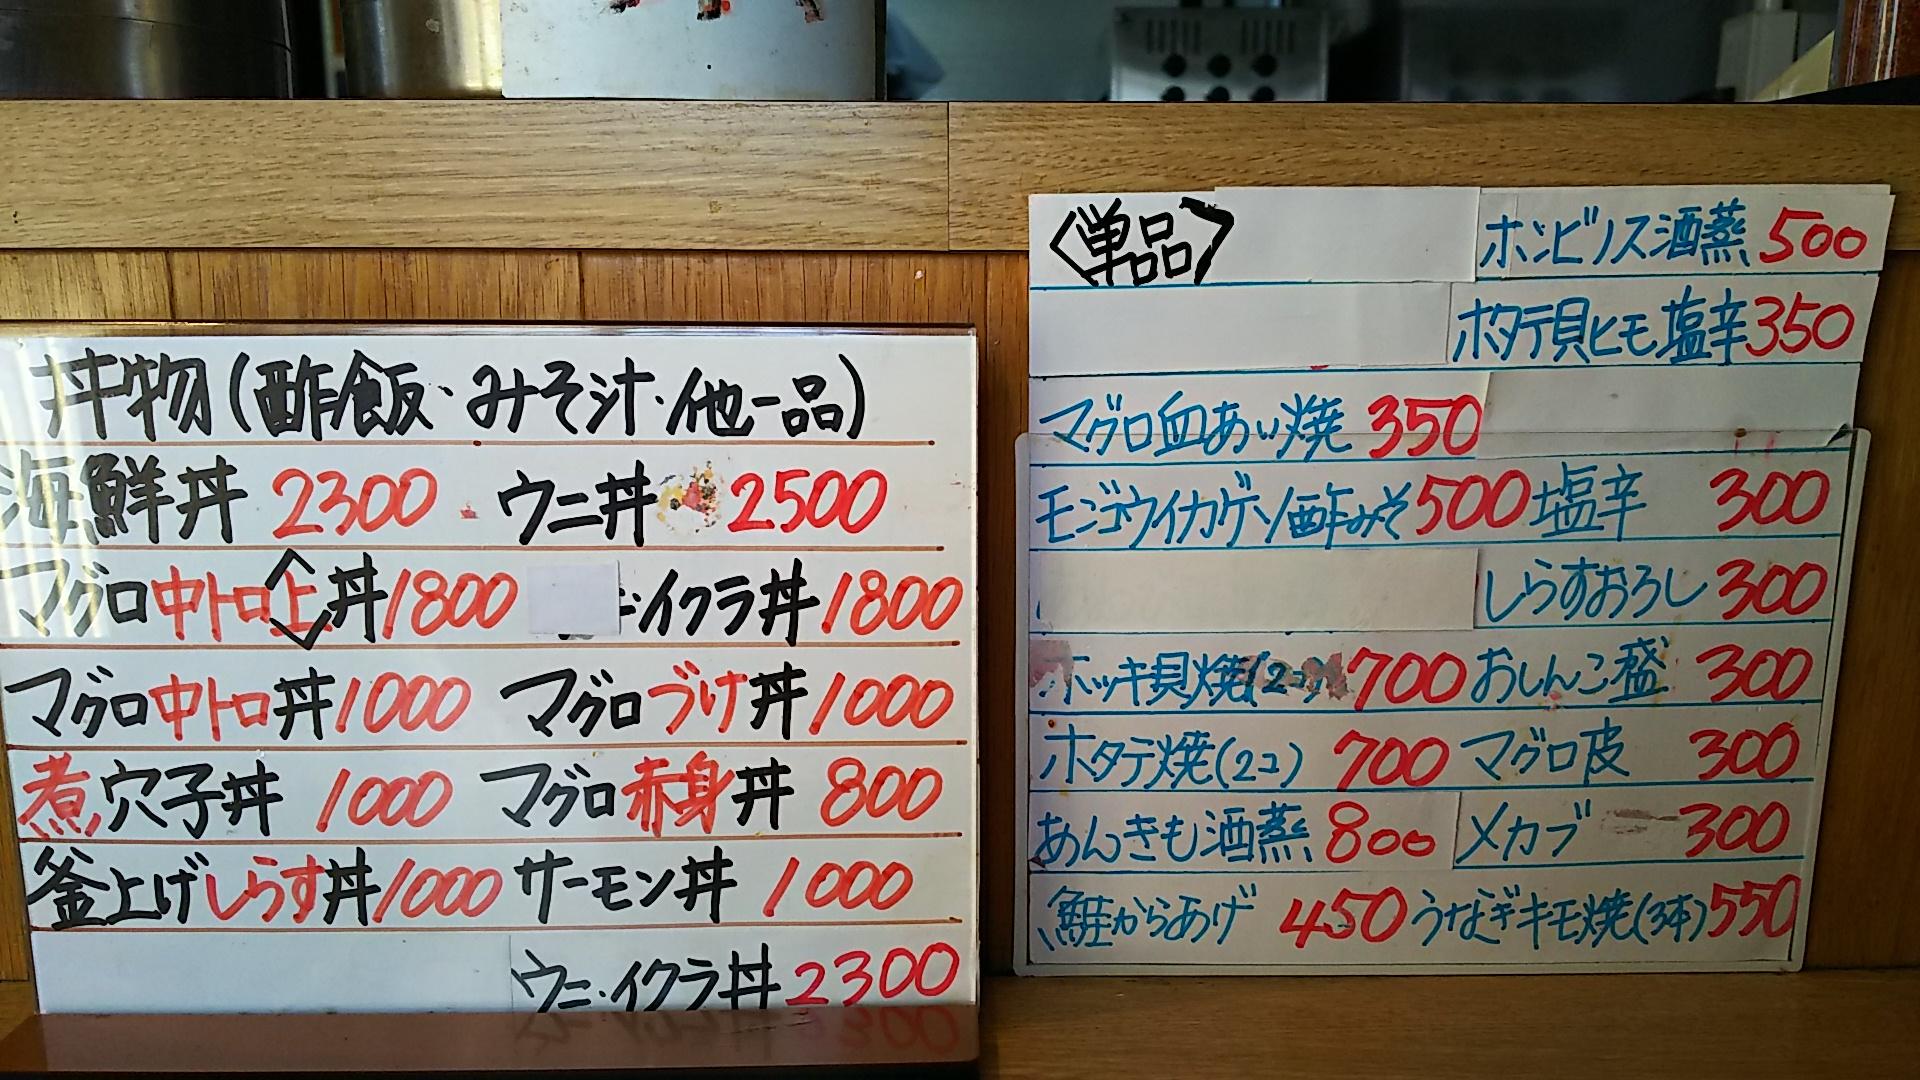 丼物(酢飯・みそ汁・他一品)
海鮮丼 2300 ウニ丼 2500
マグロ中トロ<上>丼 1800 イクラ丼 1800
マグロ中トロ丼 1000 マグロづけ丼 1000
煮穴子丼 1000 マグロ赤身丼 800
釜上げしらす丼 1000 サーモン丼 1000
ウニ・イクラ丼 2300
<単品> ホンビノス酒蒸 500
ホタテ貝ヒモ塩辛 350
マグロ血あい焼 350
モンゴウイカゲソ酢みそ 500 塩辛 300
しらすおろし 300
ホッキ貝焼(2コ) 700 おしんこ盛 300
ホタテ焼(2コ) 700 マグロ皮 300
あんきも酒蒸 800 メカブ 300
鮭からあげ 450 うなぎキモ焼(3本) 550